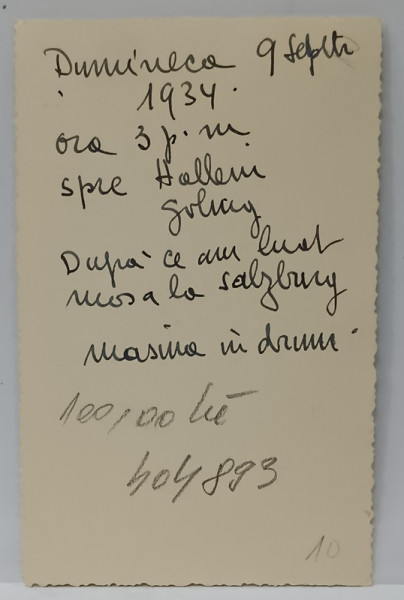 Dumineca 9 Septr
1934.
ora 3 p.m
spre Hallein
Goling
După ce am luat
masa la Salzburg
masina in drum.
100,00 Kč
404893
10